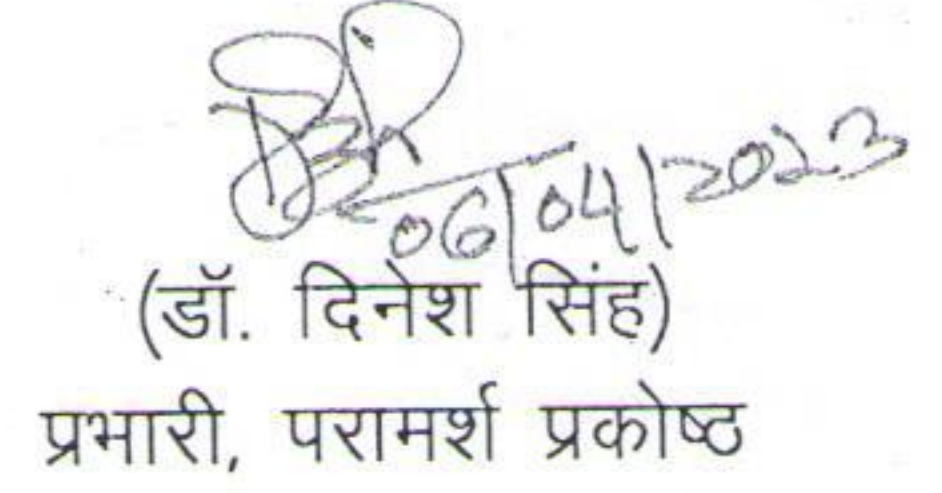 06/04/2023
(डॉ. दिनेश सिंह)
प्रभारी, परामर्श प्रकोष्ठ